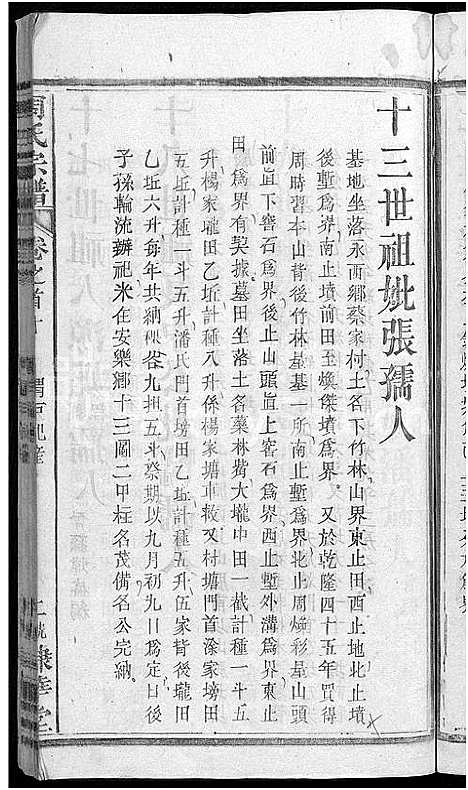 十三世祖妣張孺人
基地坐落永西鄉蔡家付土名下竹林山界東止田西止地北止墳
後塹爲界南止墳前田至煥傑墳爲界又於乾隆四十五年買得
周時習本山背後竹林塋基一所南止塹爲界北止周煥彩塋山頭
前直下窖石爲界後止山頭直上窖石爲界西止塹外溝爲界東止
田爲界有契據墓田坐落土名藥林嵛大壠中田一截計種一斗五
升楊家壠田乙坵計種八升係楊家塘車救又村塘門首涂家塝田
五坵計種一斗五升潘氏門首塝田乙坵計種五升伍家背後壠田
乙坵六升每年共納租谷九担五斗祭期以九月初九日爲定日後
子孫輪流辦祀米在安樂鄉十三圖二甲柱名茂備名公完納
周氏宗譜
卷之首十